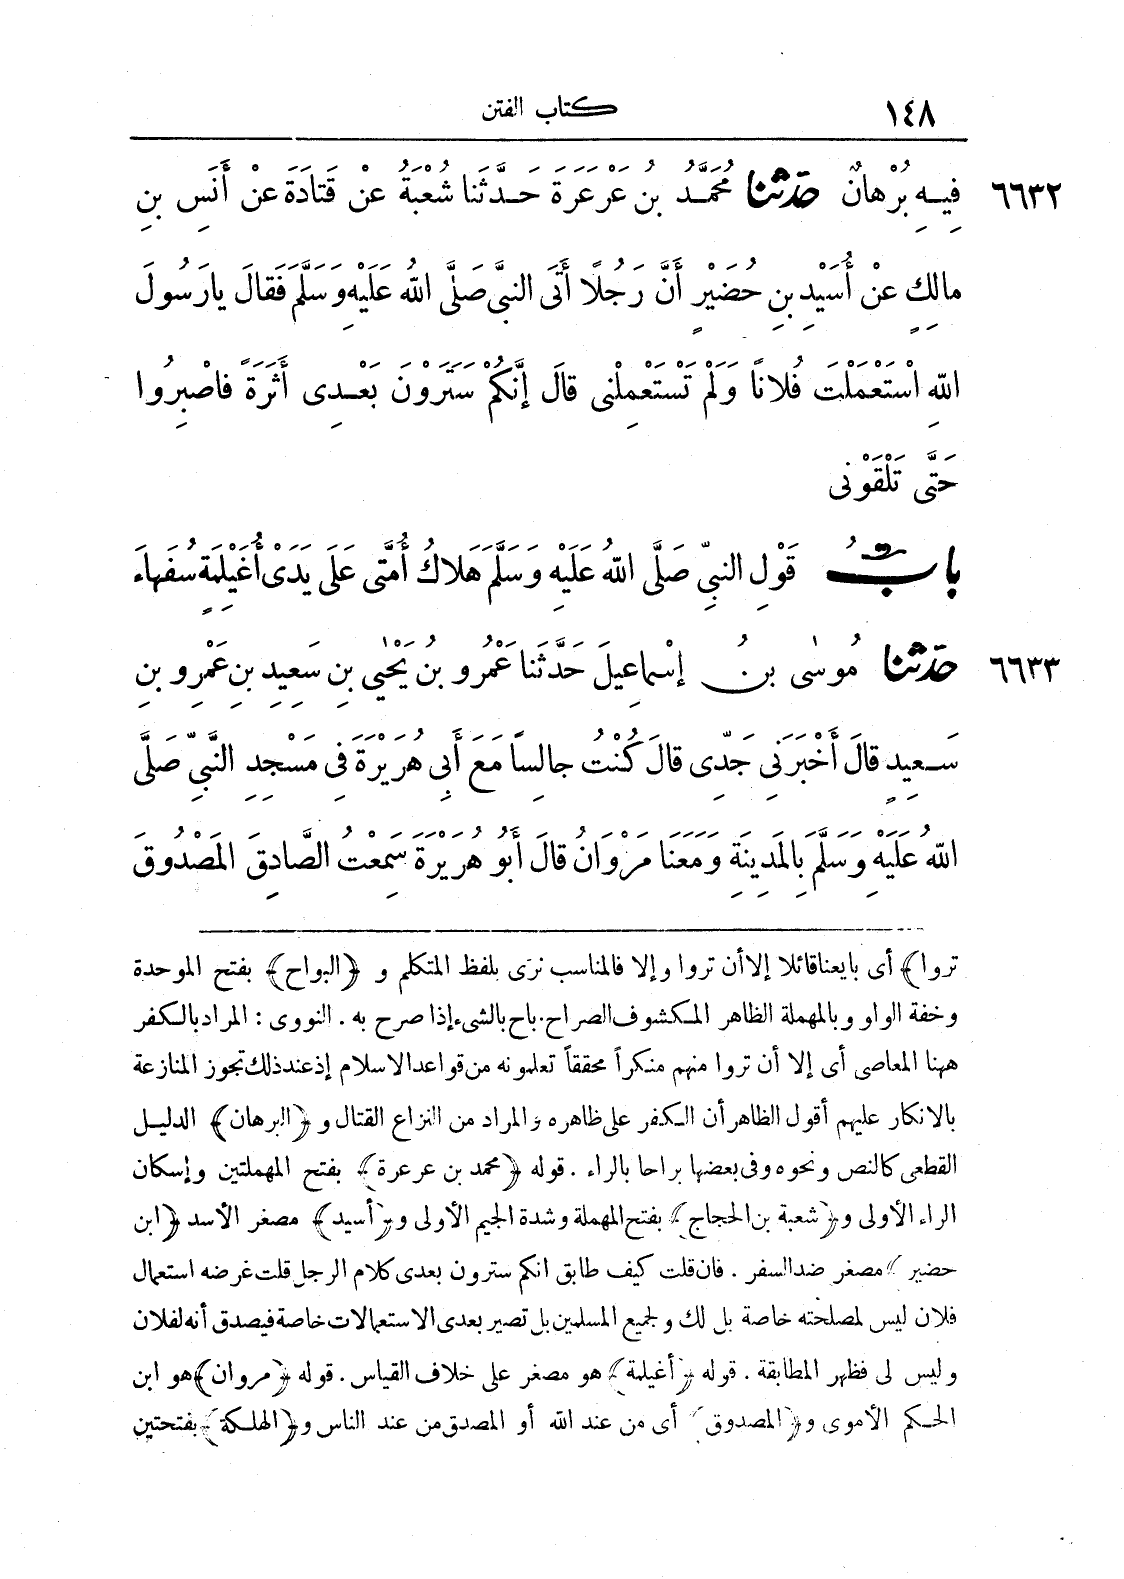 ١٤٨ كتاب الفتن
٦٦٣٢ فِيهِ بُرْهانٌ حدثنا مُحَمَّدُ بنُ عَرْعَرَةَ حَدَّثَنا شُعْبَةُ عنْ قَتادَةَ عنْ أَنَسِ بنِ
مالِكٍ عنْ أُسَيْدِ بنِ حُضَيْرٍ أنَّ رَجُلًا أَتَى النبيَّ صَلَّى اللهُ عَلَيْهِ وَسَلَّمَ فَقالَ يارَسُولَ
اللهِ اسْتَعْمَلْتَ فُلانًا وَلَمْ تَسْتَعْمِلْنى قالَ إنَّكُمْ سَتَرَوْنَ بَعْدِى أَثَرَةً فاصْبِرُوا
حَتَّى تَلْقَوْنى
بابُ قَوْلِ النبيِّ صَلَّى اللهُ عَلَيْهِ وَسَلَّمَ هَلاكُ أُمَّتى عَلَى يَدَىْ أُغَيْلِمَةٍ سُفَهاءَ
٦٦٣٣ حدثنا مُوسَى بنُ إسْماعِيلَ حَدَّثَنا عَمْرُو بنُ يَحْيٰى بنِ سَعِيدِ بنِ عَمْرِو بنِ
سَعِيدٍ قالَ أَخْبَرَنى جَدِّى قالَ كُنْتُ جالِسًا مَعَ أَبِى هُرَيْرَةَ فِى مَسْجِدِ النَّبِيِّ صَلَّى
اللهُ عَلَيْهِ وَسَلَّمَ بِالمَدِينَةِ وَمَعَنا مَرْوَانُ قالَ أَبُو هُرَيْرَةَ سَمِعْتُ الصَّادِقَ المَصْدُوقَ
تروا﴾ أى بايعنا قائلا إلا أن تروا وإلا فالمناسب نرى بلفظ المتكلم و﴿البواح﴾ بفتح الموحدة
وخفة الواو وبالمهملة الظاهر المكشوف الصراح. باح بالشىء إذا صرح به. النووى: المراد بالكفر
ههنا المعاصى أى إلا أن تروا منهم منكراً محققاً تعلمونه من قواعد الاسلام إذ عند ذلك تجوز المنازعة
بالانكار عليهم أقول الظاهر أن الكفر على ظاهره والمراد من النزاع القتال و﴿البرهان﴾ الدليل
القطعى كالنص ونحوه وفى بعضها براحا بالراء. قوله ﴿محمد بن عرعرة﴾ بفتح المهملتين وإسكان
الراء الأولى و﴿شعبة بن الحجاج﴾ بفتح المهملة وشدة الجيم الأولى و﴿أسيد﴾ مصغر الأسد ﴿ابن
حضير﴾ مصغر ضد السفر. فان قلت كيف طابق انكم سترون بعدى كلام الرجل قلت غرضه استعمال
فلان ليس لمصلحته خاصة بل لك ولجميع المسلمين بل تصير بعدى الاستعمالات خاصة فيصدق أنه لفلان
وليس لى فظهر المطابقة. قوله ﴿أغيلمة﴾ هو مصغر على خلاف القياس. قوله ﴿مروان﴾ هو ابن
الحكم الأموى و﴿المصدوق﴾ أى من عند الله أو المصدق من عند الناس و﴿الهلكة﴾ بفتحتين